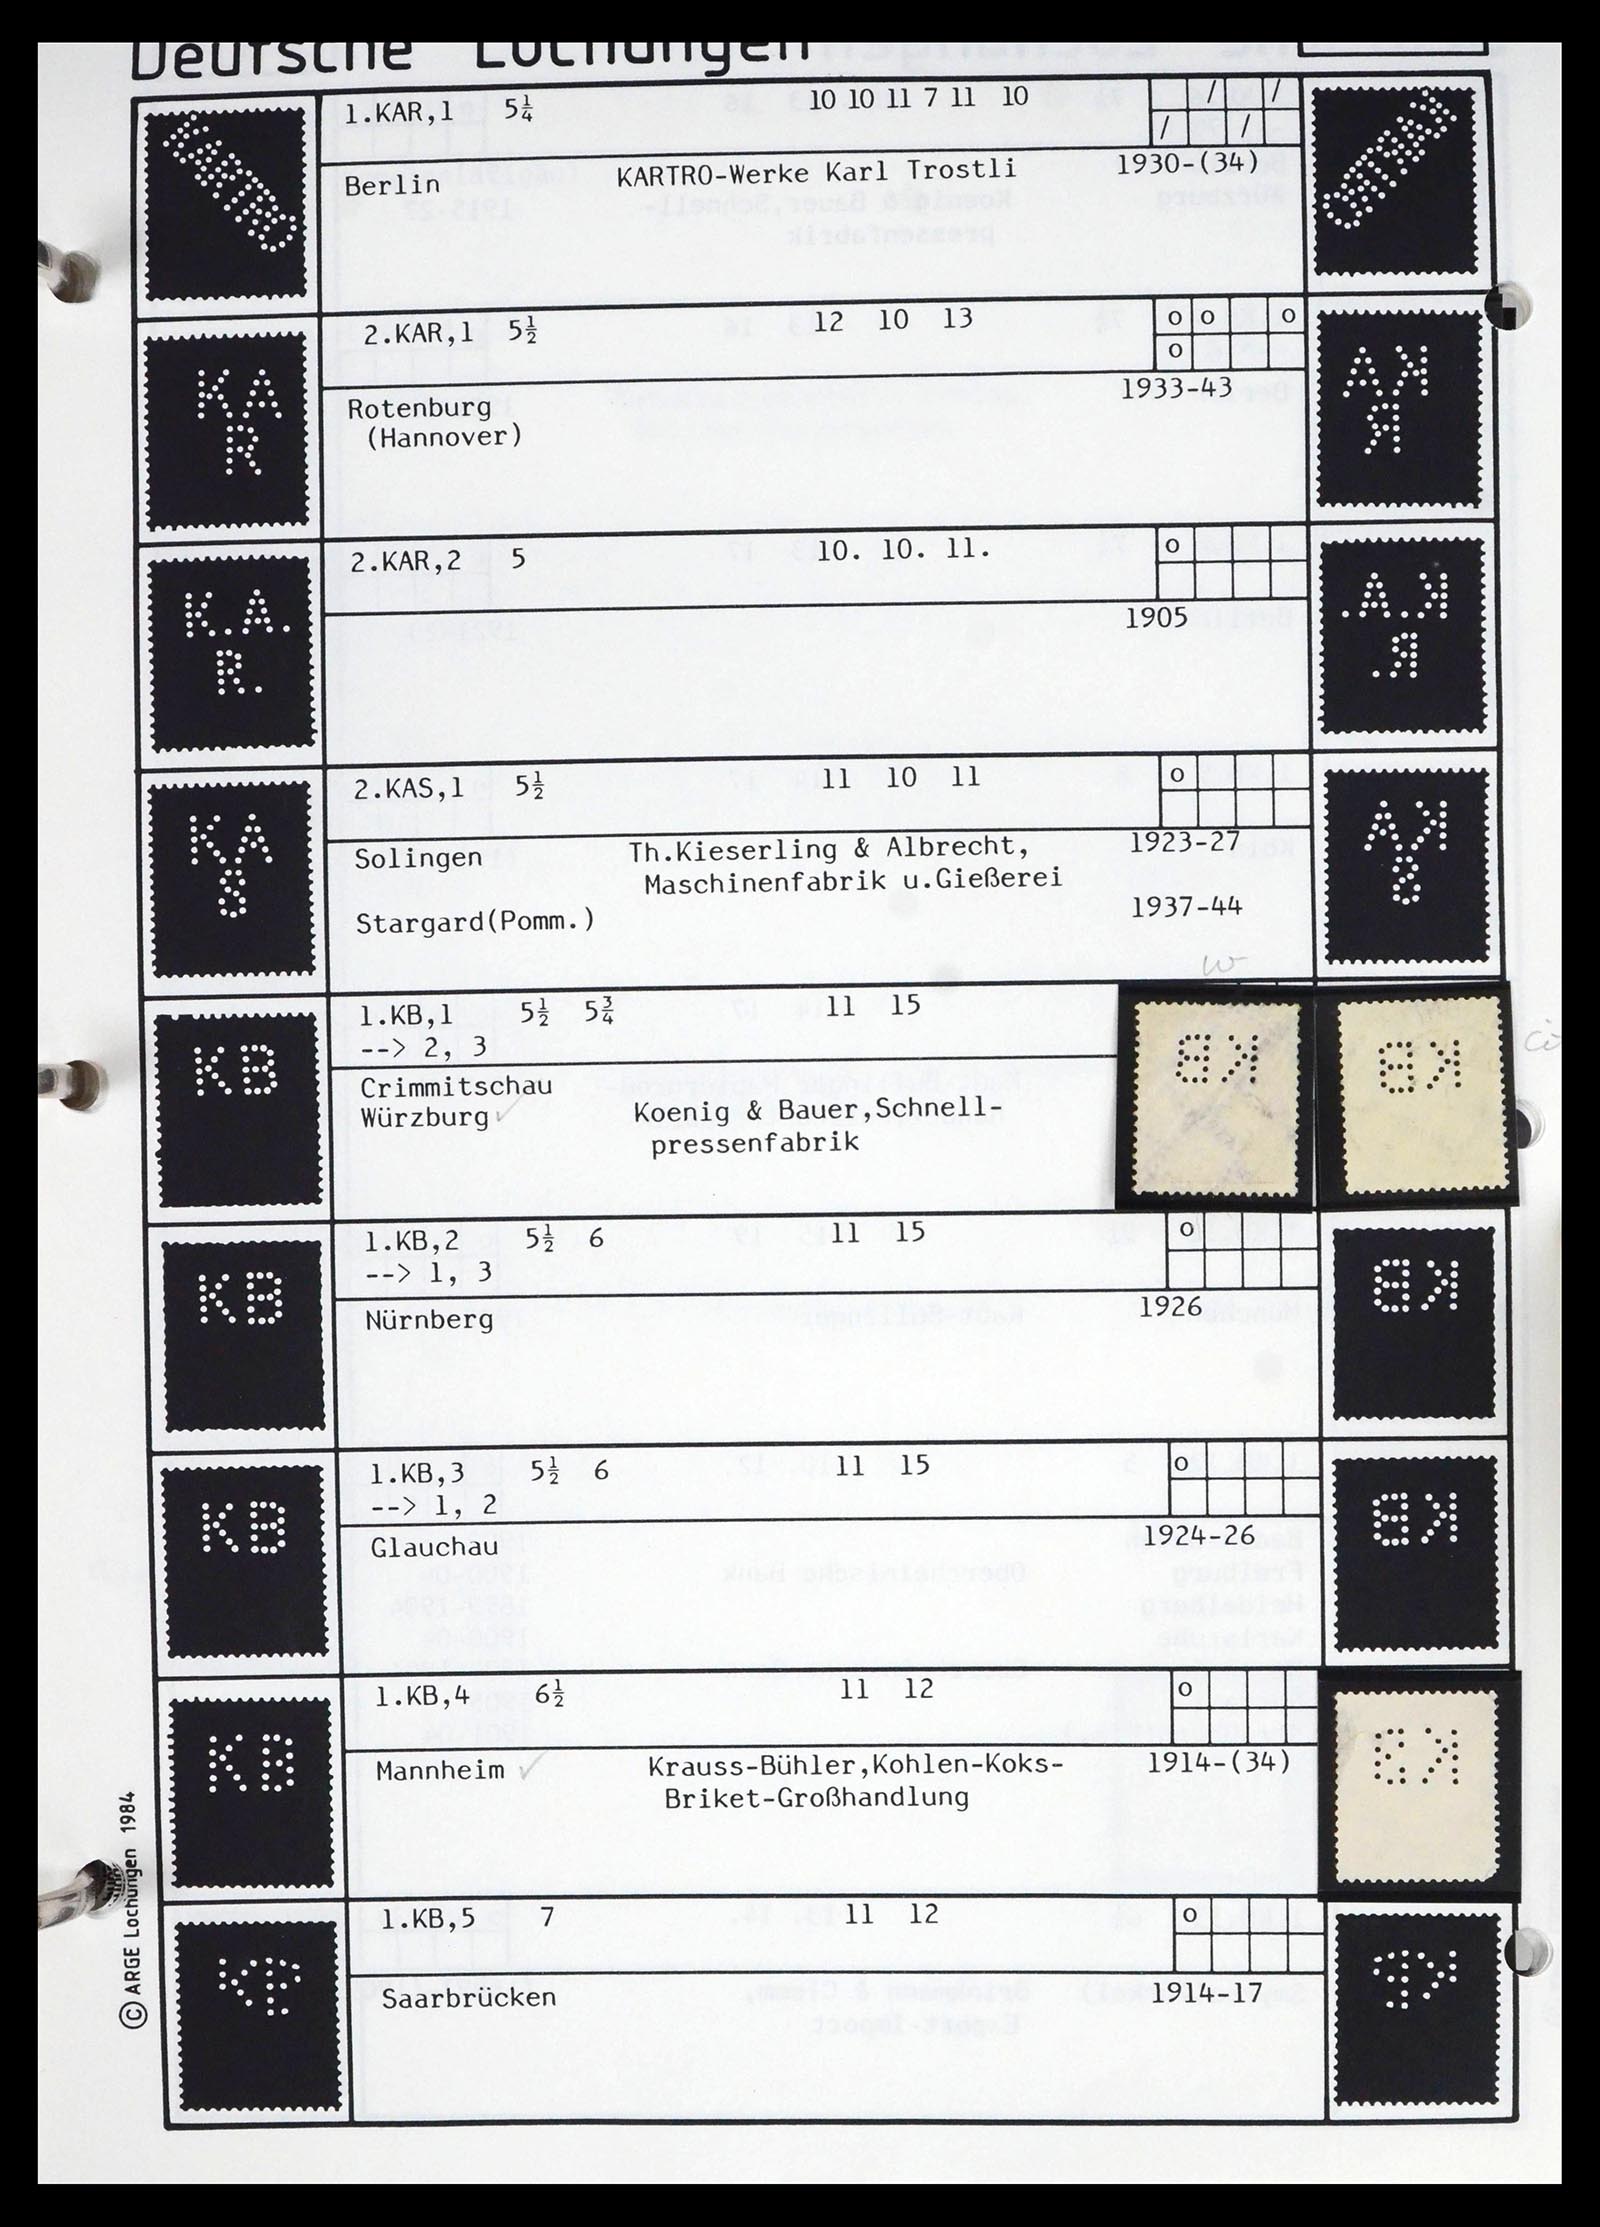 Deutsche Lochungen
1.KAR,1 5¼ 10 10 11 7 11 10
Berlin KARTRO-Werke Karl Trostli 1930-(34)
KARTRO
2.KAR,1 5½ 12 10 13
o o o
o
KA
R
Rotenburg 1933-43
(Hannover)
2.KAR,2 5 10. 10. 11. o
K.A.
R.
1905
2.KAS,1 5½ 11 10 11 o
KA
S
Solingen Th.Kieserling & Albrecht, 1923-27
Maschinenfabrik u.Gießerei
Stargard(Pomm.) 1937-44
w
1.KB,1 5½ 5¾ 11 15
--> 2, 3
KB
Crimmitschau
Würzburg ✓ Koenig & Bauer,Schnell-
pressenfabrik
1.KB,2 5½ 6 11 15 o
--> 1, 3
KB
Nürnberg 1926
1.KB,3 5½ 6 11 15 o
--> 1, 2
KB
Glauchau 1924-26
1.KB,4 6½ 11 12 o
KB
Mannheim ✓ Krauss-Bühler,Kohlen-Koks- 1914-(34)
Briket-Großhandlung
1.KB,5 7 11 12 o
KB
Saarbrücken 1914-17
© ARGE Lochungen 1984